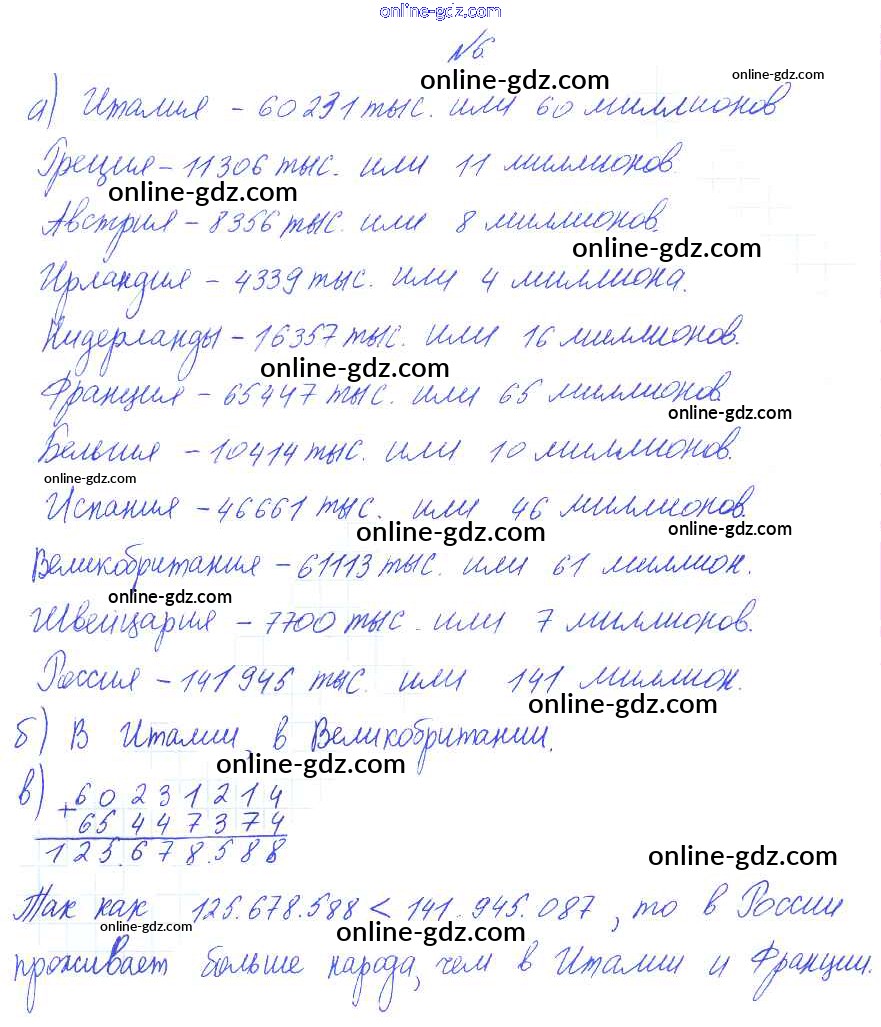 online-gdz.com
№6.
online-gdz.com
online-gdz.com
а) Италия - 60231 тыс. или 60 миллионов
Греция - 11306 тыс. или 11 миллионов.
online-gdz.com
Австрия - 8356 тыс. или 8 миллионов.
online-gdz.com
Ирландия - 4339 тыс. или 4 миллиона.
Нидерланды - 16357 тыс. или 16 миллионов.
online-gdz.com
Франция - 65447 тыс. или 65 миллионов
online-gdz.com
Бельгия - 10414 тыс. или 10 миллионов.
online-gdz.com
Испания - 46661 тыс. или 46 миллионов.
online-gdz.com
online-gdz.com
Великобритания - 61113 тыс. или 61 миллион.
online-gdz.com
Швейцария - 7700 тыс. или 7 миллионов.
Россия - 141945 тыс. или 141 миллион.
online-gdz.com
б) В Италии, в Великобритании.
online-gdz.com
в) +60231214
65447374
125.678.588
online-gdz.com
Так как 125.678.588 < 141.945.087, то в России
online-gdz.com
online-gdz.com
проживает больше народа, чем в Италии и Франции.